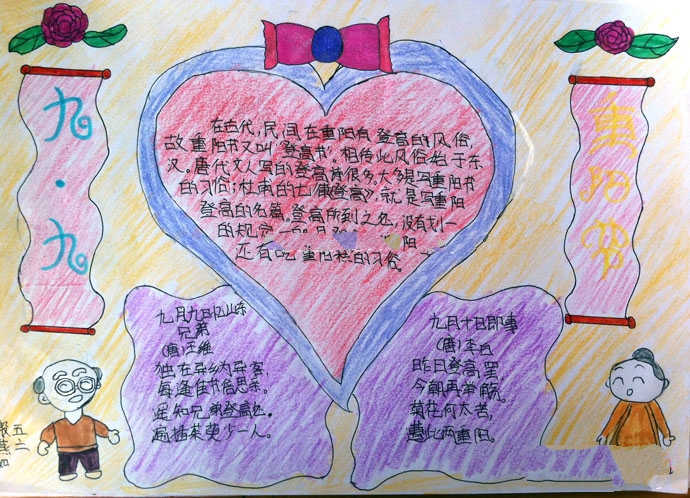 九·九
重阳节
在古代,民间在重阳有登高的风俗,
故重阳节又叫“登高节”。相传此风俗始于东
汉。唐代文人写的登高诗很多,大多是写重阳节
的习俗;杜甫的七律《登高》,就是写重阳
登高的名篇。登高所到之处,没有划一
的规定
阳
还有吃重阳糕的习俗。
九月九日忆山东
兄弟
(唐)王维
独在异乡为异客,
每逢佳节倍思亲。
遥知兄弟登高处,
遍插茱萸少一人。
九月十日即事
(唐)李白
昨日登高罢
今朝再举觞。
菊花何太苦,
遭此两重阳。
五
二